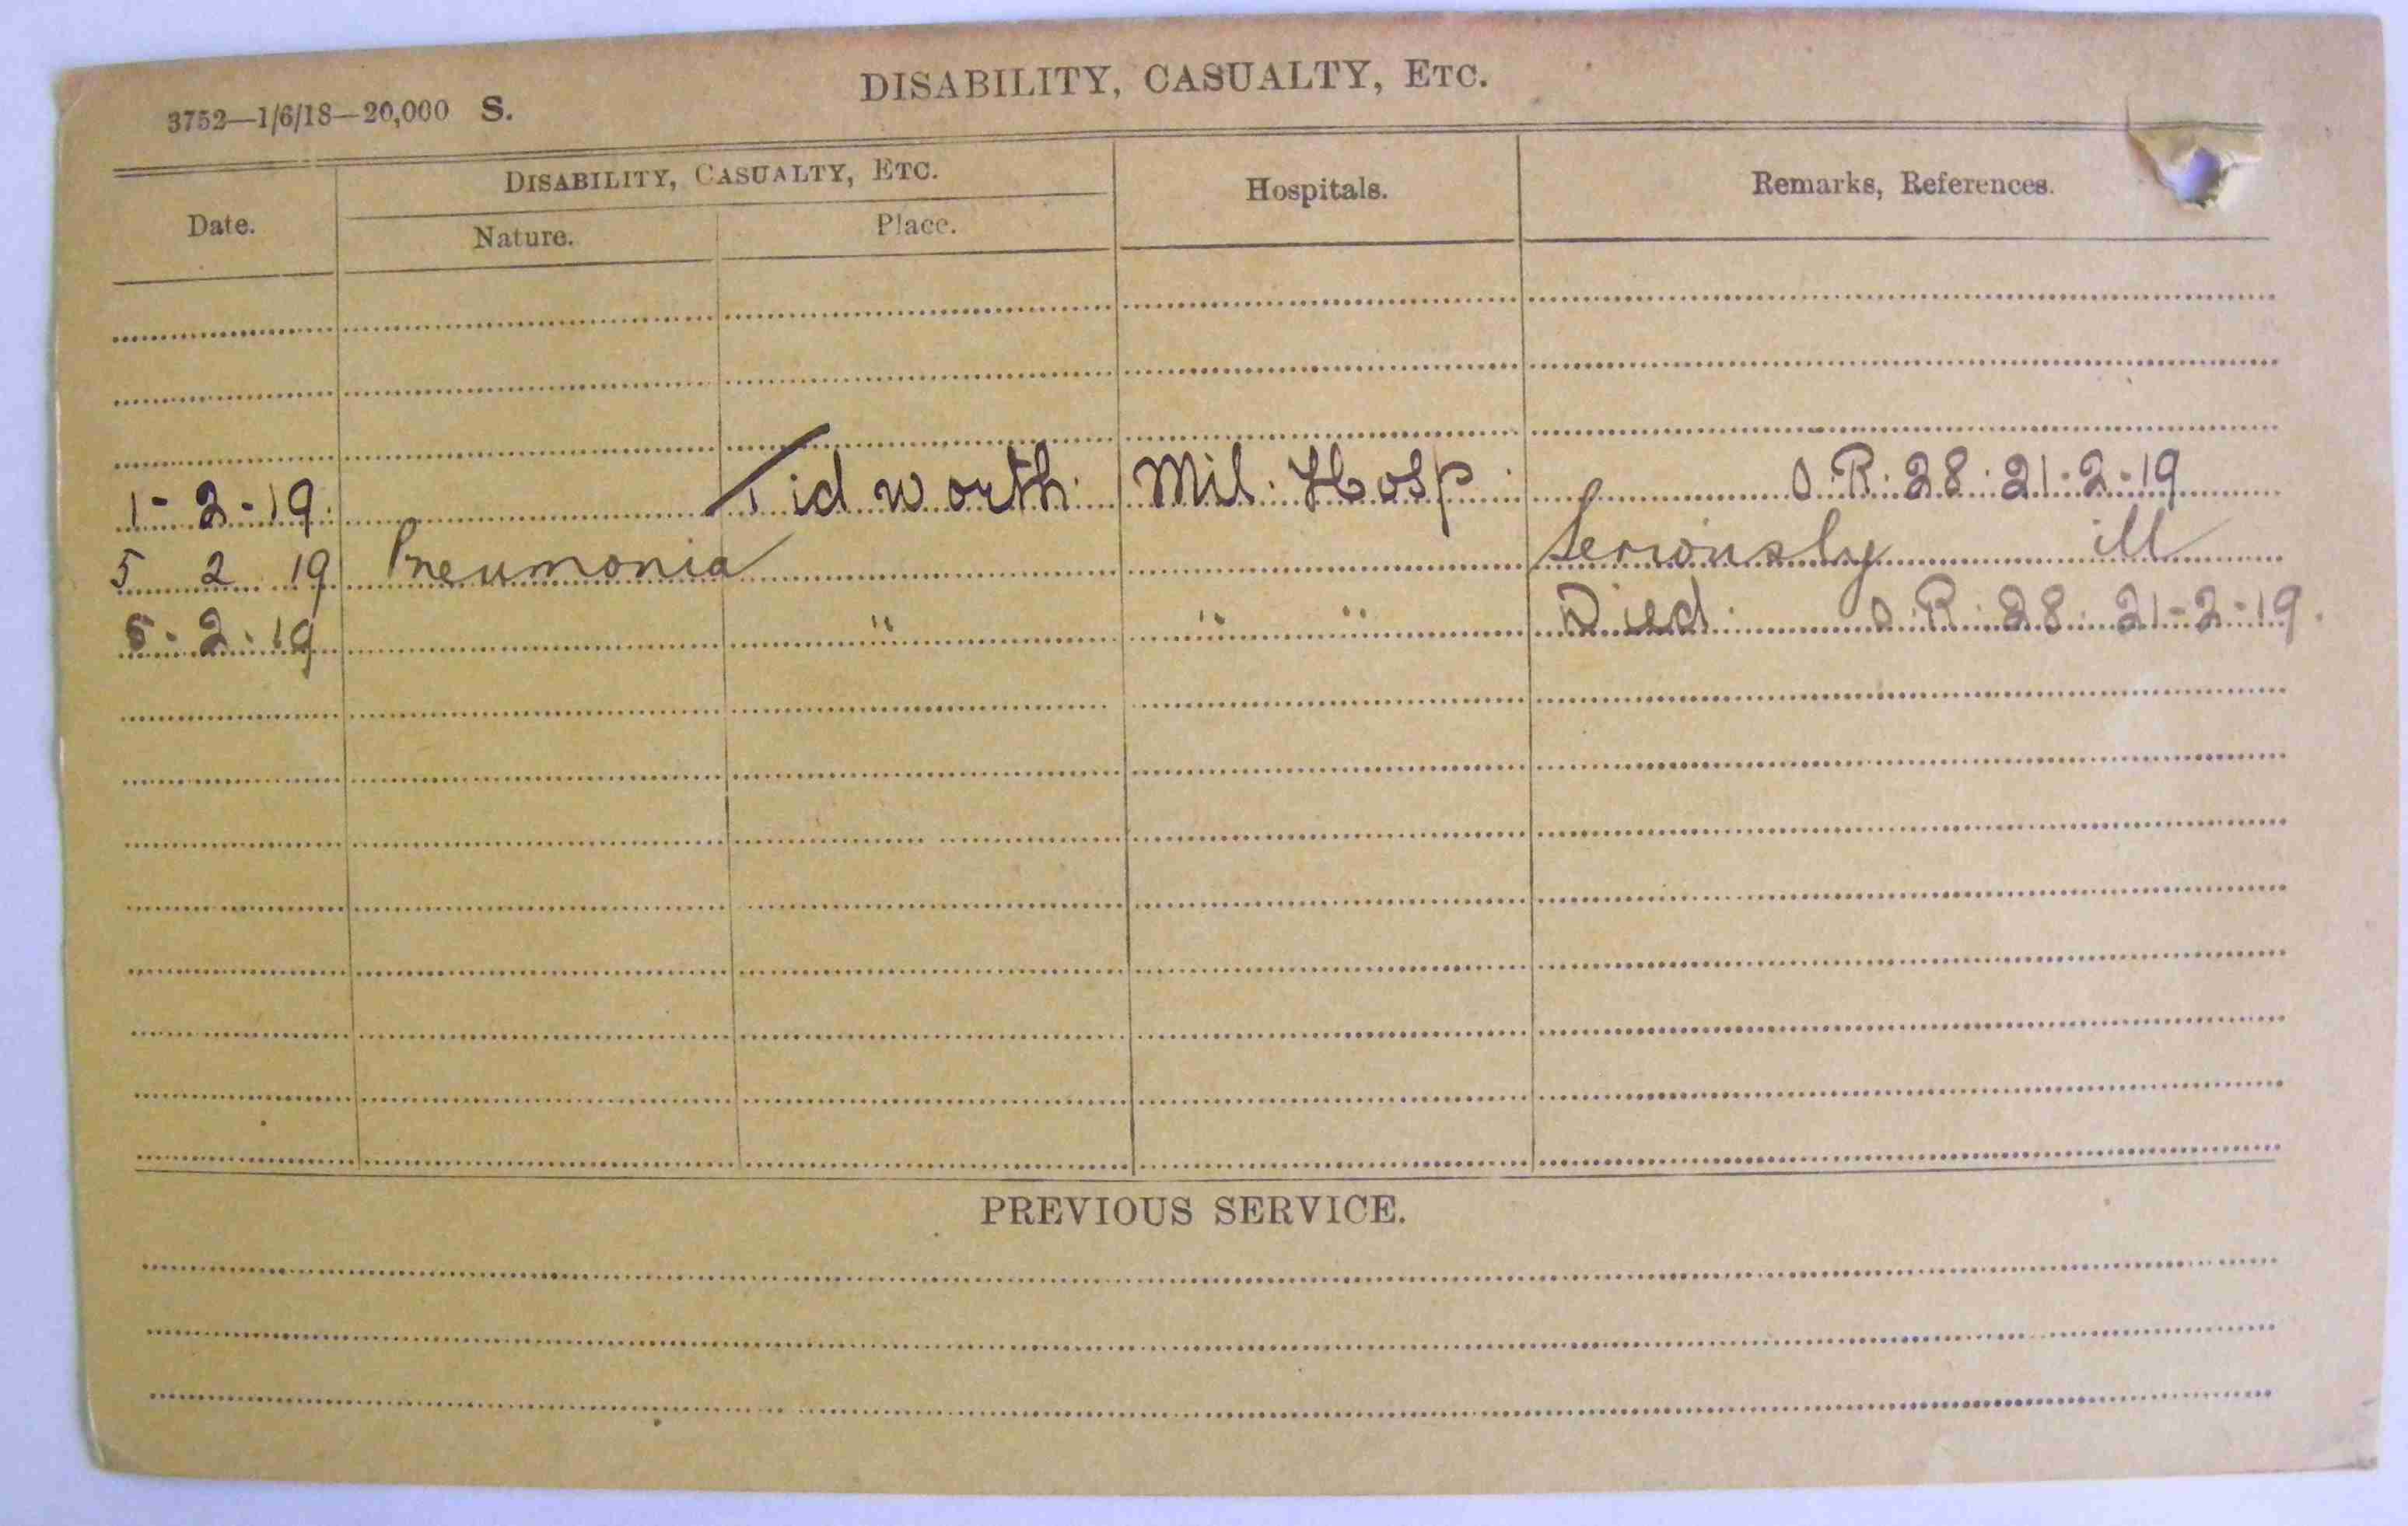 DISABILITY, CASUALTY, ETC.
3752—1/6/18—20,000 S.
Date. DISABILITY, CASUALTY, ETC. Hospitals. Remarks, References.
Nature. Place.
1-2-19. Tidworth. Mil. Hosp. O.R. 28. 21-2-19
5 2 19 Pneumonia Seriously ill
6-2-19 " " " Died. O.R. 28. 21-2-19.
PREVIOUS SERVICE.